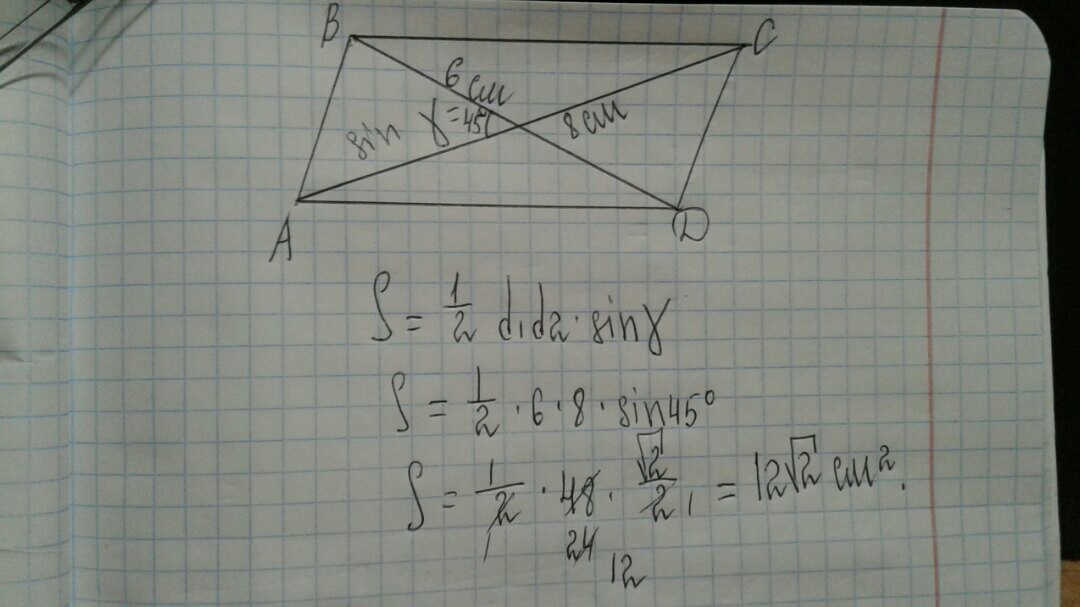 B
C
6 см
8 см
sin γ = 45°
A
D
S = 1/2 d₁d₂ · sinγ
S = 1/2 · 6 · 8 · sin45°
S = 1/2 · 48 · √2/2 = 12√2 см².
1
24
1
12